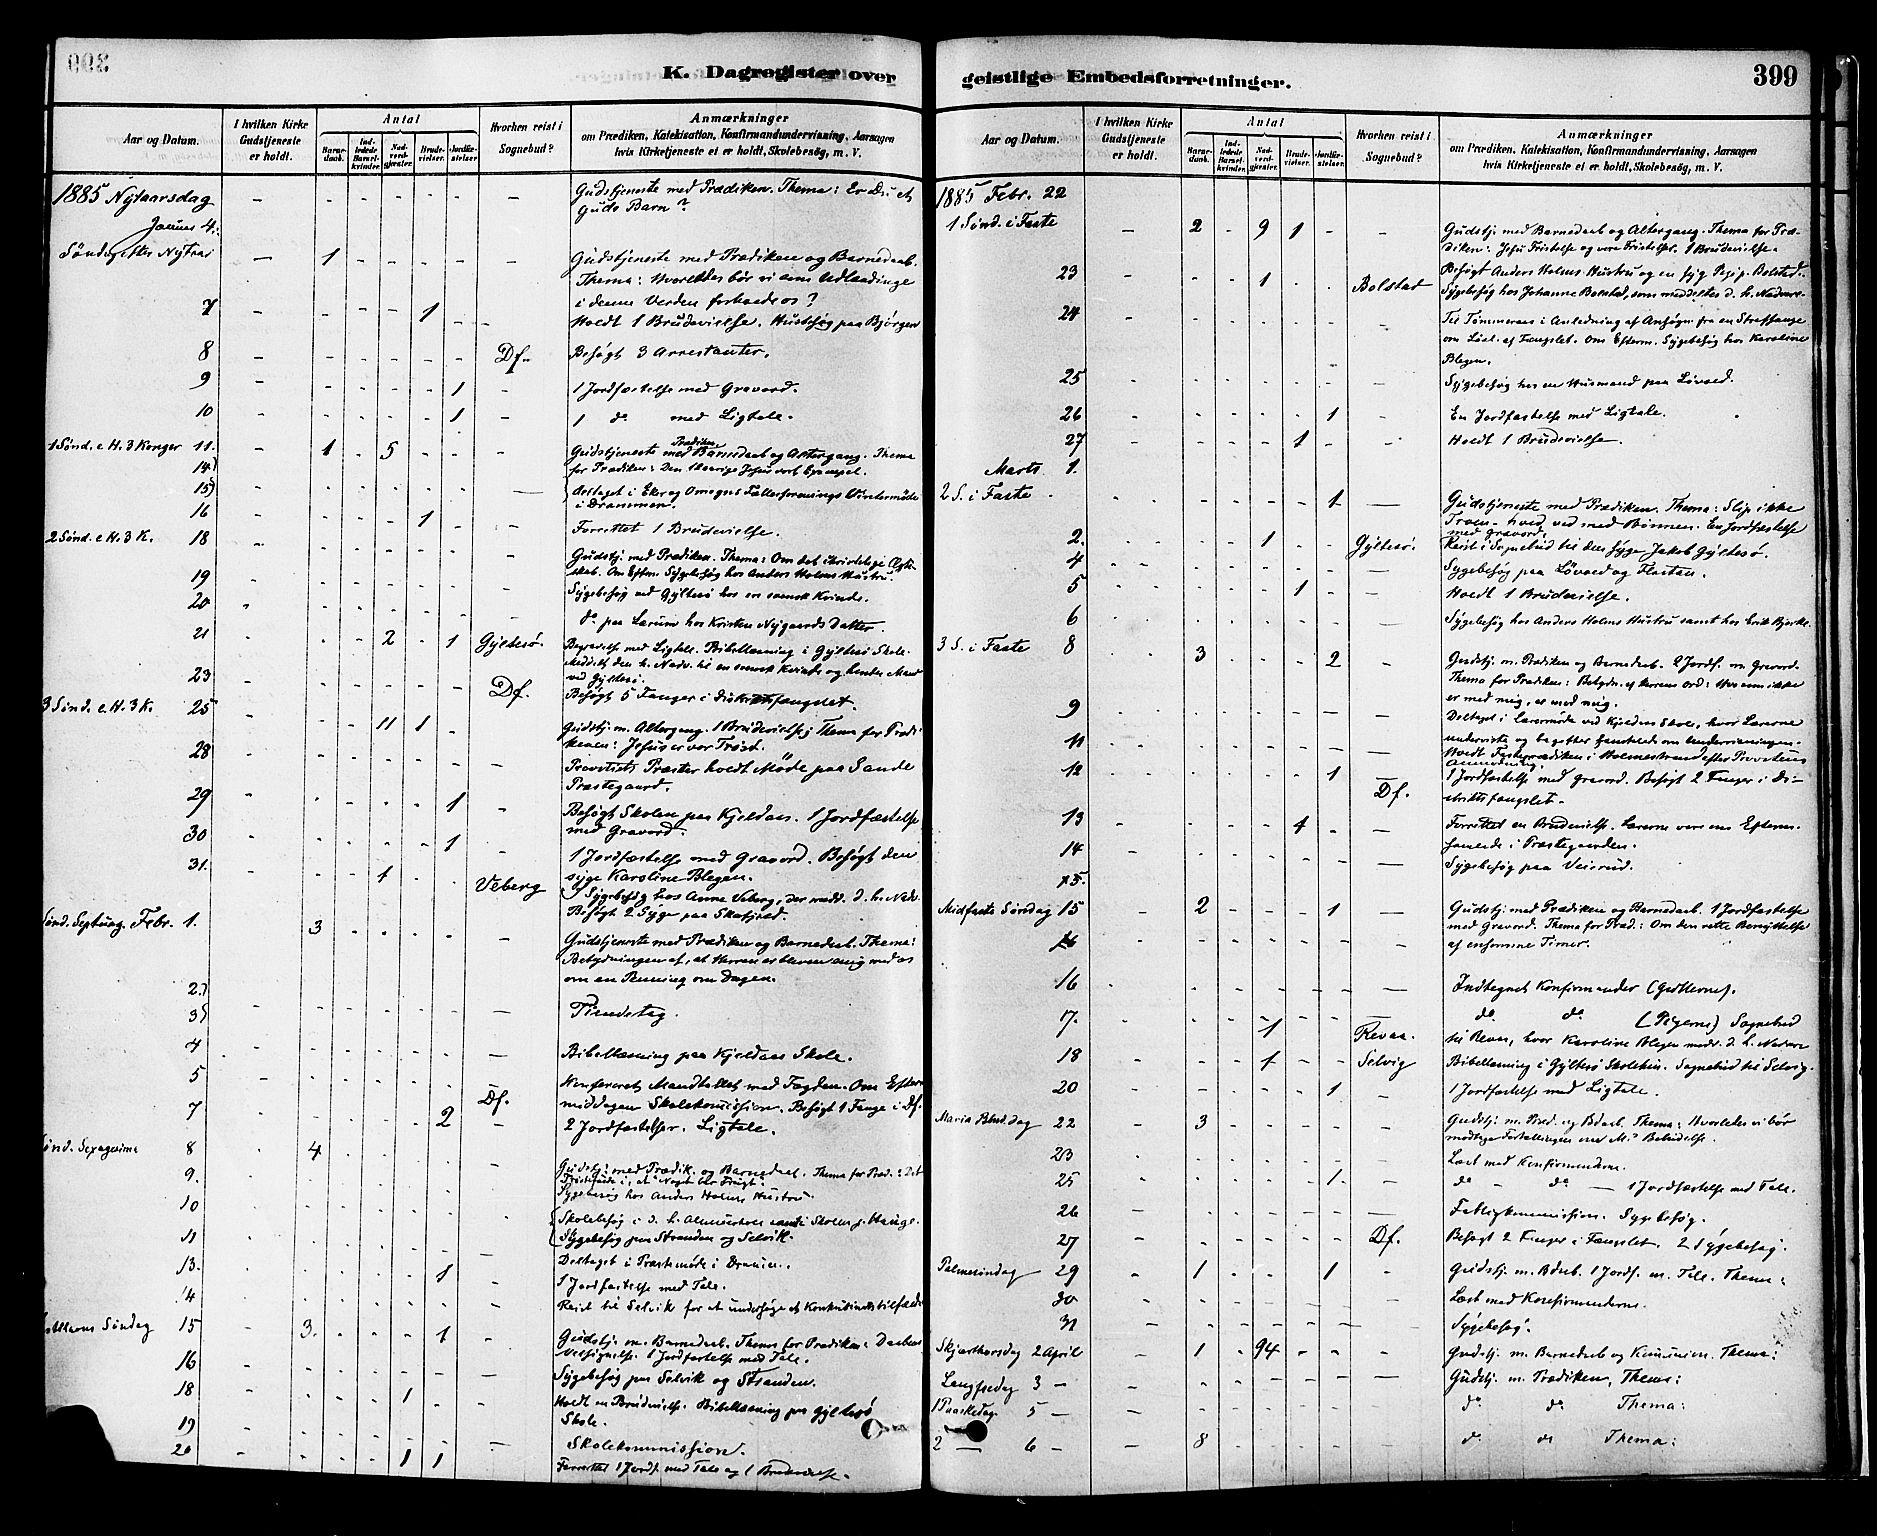 K. Dagregister over
Aar og Datum.
I hvilken Kirke Gudstjeneste er holdt.
Antal
Barnedaab.
Indledede Barselkvinder.
Nadverdgjester.
Brudevielser.
Jordfæstelser.
Hvorhen reist i Sognebud?
Anmærkninger
om Prædiken, Katekisation, Konfirmandundervisning, Aarsagen
hvis Kirketjeneste ei er holdt, Skolebesög, m. V.
1885 Nytaarsdag - - - - - - - Gudstjeneste med Prædiken. Thema: Er Du et
Guds Barn?
Januar 4.
Søndag efter Nytaar - 1 - - - - - Gudstjeneste med Prædiken og Barnedaab.
Thema: Hvorledes bør vi som Udlændinge
i denne Verden forholde os?
7 - - - - 1 - - Holdt 1 Brudevielse. Husbesøg paa Bjørgen
8 - - - - - - Df. Besøgt 3 Arrestanter.
9 - - - - - 1 - 1 Jordfæstelse med Gravord.
10 - - - - - 1 - 1 do med Ligtale.
1 Sønd. e H. 3 Konger 11. - 1 - 5 - - - Gudstjeneste med Prædiken Barnedaab og Altergang. Thema
for Prædiken: Den 12aarige Jesus vort Exempel.
14
15 Deltaget i Eker og Omegns Fællesforenings Vintermøde
i Drammen.
16 - - - - 1 - - Forrettet 1 Brudevielse.
2 Sønd. e H. 3 K. 18 Gudstj. med Prædiken. Thema: Om det christelige Ægteskab.
Om Efterm. Sygebesøg hos Anders Holms Hustru.
19 Sygebesøg ved Gyltesø hos en svensk Kvinde.
20 do paa Lerum hos Kristen Nygaards Datter.
21 - - - 2 - 1 Gyltesø. Begravelse med Ligtale. Bibellæsning i Gyltesø Skole
meddelt den h. Nadv. til en svensk Kvinde og hendes Mand
ved Gyltesø.
23 - - - - - - Df. Besøgt 5 Fanger i Distriktsfængslet.
3 Sønd. e. H. 3 K. 25 - - - 11 1 - Gudstj. m. Altergang. 1 Brudevielse; Thema for Prædikenen:
Jesus er vor Trøst.
28 Provstiets Præster holdt Møde paa Sande
Præstegaard.
29 - - - - - 1 - Besøgt Skolen paa Kjeldaas. 1 Jordfæstelse
med Gravord.
30 - - - - - 1 - 1 Jordfæstelse med Gravord. Besøgt den
syge Karoline Blegen.
31. - - - 1 - - Veberg Sygebesøg hos Anne Veberg, der medd. d. h. Nadv.
Besøgt 2 Syge paa Skafjeld.
Sønd. Septuag. Febr. 1. 3 - - - - - Gudstjeneste med Prædiken og Barnedaab. Thema:
Betydningen af, at Herren er bleven enig med os
om en Penning om Dagen.
2
3 Tiendetag.
4 Bibellæsning paa Kjeldaas Skole.
5 Df. Konfereret Mandtallet med Fogden. Om Eftermiddagen
Skolekommission. Besøgt 1 Fange i Df.
7 - - - - - 2 - 2 Jordfæstelser. Ligtale.
Sønd. Sexagesima 8 4 - - - - - Gudstj. med Prædik. og Barnedaab. Thema for Præd.: Det
9. Sygebesøg hos Anders Holms Hustru.
10 Skolebesøg i
11 Sygebesøg paa Stranden og Selvik.
13. - - - - - 1 Deltaget i Præstemøde i Drammen.
1 Jordfæstelse med Tale.
14 Reist til Selvik for at undersøge et Konkubinatstilfælde
Fastelavns Søndag 15 - 3. - - - 1 - Gudstj. m. Barnedaab. Thema for Prædiken: Daabens
Velsignelse. 1 Jordfæstelse med Tale.
16 Sygebesøg paa Selvik og Stranden.
18 - - - - 1 - - Holdt en Brudevielse. Bibellæsning paa Gyltesø
Skole.
19 Skolekommission.
20 - - - - 1 1 - Forrettet 1 Jordf. med Tale og 1 Brudevielse.
geistlige Embedsforretninger.
399
Aar og Datum.
I hvilken Kirke Gudstjeneste er holdt.
Antal
Barnedaab.
Indledede Barselkvinder.
Nadverdgjester.
Brudevielser.
Jordfæstelser.
Hvorhen reist i Sognebud?
Anmærkninger
om Prædiken, Katekisation, Konfirmandundervisning, Aarsagen
hvis Kirketjeneste ei er holdt, Skolebesög, m. V.
1885 Febr. 22
1 Sønd. i Faste - 2 - 9 1 - - Gudstj. med Barnedaab og Altergang. Thema for Prædiken:
Jesu Fristelse og vore Fristelser. 1 Brudevielse.
23 - - - 1 - - Bolstad Besøgt Anders Holms Hustru og en syg Pige p. Bolstad.
Sygebesøg hos Johanne Bolstad, som meddeltes d. h. Nadver.
24 Til Tømmeraas i Anledning af Ansøgn. fra en Straffange
om Løsl. af Fængslet. Om Efterm. Sygebesøg hos Karoline
Blegen.
25 Sygebesøg hos en Husmand paa Løvaas.
26 - - - - - 1 - En Jordfæstelse med Ligtale.
27 - - - - 1 - - Holdt 1 Brudevielse.
Marts 1.
2 S. i Faste - - - - - 1 - Gudstjeneste med Prædiken. Thema: Slip ikke
Troen - hold ved med Bønnen. En Jordfæstelse
med Gravord.
2. - - - 1 - - Gyltesø. Reist i Sognebud til den syge Jakob Gyltesø.
4 Sygebesøg paa Løvaas og
5 - - - - 1 - - Holdt 1 Brudevielse.
6 Sygebesøg hos Anders Holms Hustru samt hos Erik Bjerke.
3 S. i Faste 8 - 3 - - - 2 - Gudstj. m. Prædiken og Barnedaab. 2 Jordf. m. Gravord.
Thema for Prædiken: Betydn. af Herrens Ord: Hvo som ikke
er med mig, er mod mig.
9 Deltaget i Lærermøde ved Kjeldaas Skole, hvor Lærerne
underviste og bagefter samtalede om Undervisningen.
11 Holdt Fasteprædiken i Holmestrand efter Provstens
Anmodning.
12 - - - - - 1 - 1 Jordfæstelse med Gravord. Besøgt 2 Fanger i Distriktsfængslet.
Df.
13 - - - - 1 - - Forrettet en Brudevielse. Lærerne vare om Efterm.
samlede i Præstegaarden.
14 Sygebesøg paa Veisrud.
15.
Midfaste Søndag 15 - 2 - - - 1 - Gudstj. med Prædiken og Barnedaab. 1 Jordfæstelse
med Gravord. Thema for Præd.: Om den rette Benyttelse
af ensomme Timer.
16
16 Indtegnet Konfirmander (Gutterne).
17. - - - 1 - - Revaa. do do (Pigerne) Sognebud
til Revaa, hvor Karoline Blegen medd. d. h. Nadvere
18 - - - 1 - - Selvig Bibellæsning i Gyltesø Skolehus. Sognebud til Selvig.
20 - - - - - 1 1 Jordfæstelse med Ligtale.
Maria Bebud. dag 22 - 3 - - - - Gudstj. m. Præd. og Bdaab. Thema: Hvorledes vi bør
modtage Fortællingen om M. Bebudelse.
23 Læst med Konfirmanderne.
25 - - - - - 1. - do - do - 1 Jordfæstelse med Tale.
26 Fattigkommission. Sygebesøg.
27 Df. Besøgt 2 Fanger i Fængslet. 2 Sygebesøg.
Palmesøndag 29 - 1 - - - 1 - Gudstj. m. Bdaab. 1 Jordf. m. Tale. Thema:
30 Læst med Konfirmanderne.
31 Sygebesøg.
Skjærthorsdag 2 April - 1 - 94 - - - Gudstj. m. Barnedaab og Kommunion. Thema:
Langfredag 3 - Gudstj. m. Prædiken, Thema:
1 Paaskedag 5 - do do Thema:
2 - 6 - - 8 - - - - - do do Thema: